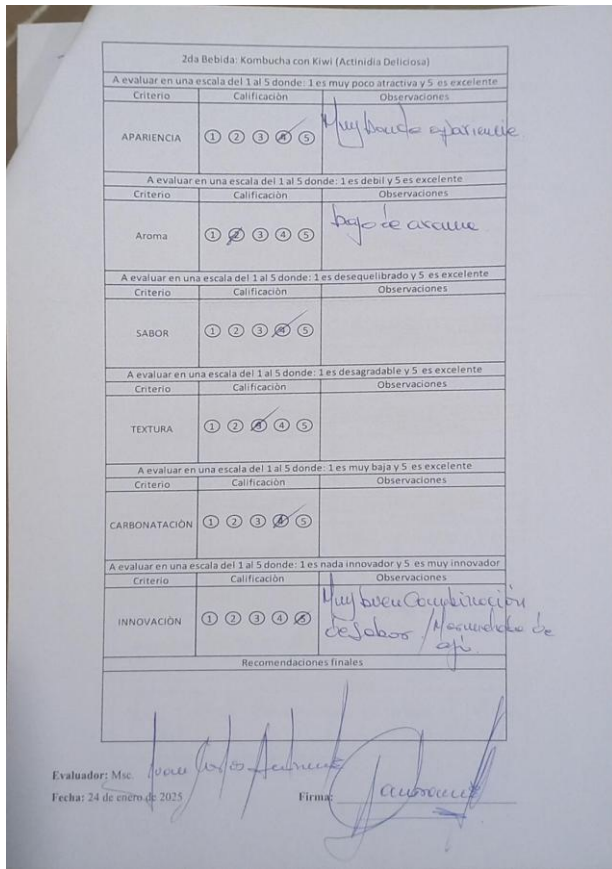 2da Bebida: Kombucha con Kiwi (Actinidia Deliciosa)
A evaluar en una escala del 1 al 5 donde: 1 es muy poco atractiva y 5 es excelente
Criterio Calificación Observaciones
APARIENCIA 1 2 3 4 5 Muy apariencia
A evaluar en una escala del 1 al 5 donde: 1 es debil y 5 es excelente
Criterio Calificación Observaciones
Aroma 1 2 3 4 5 bajo de aroma
A evaluar en una escala del 1 al 5 donde: 1 es desequelibrado y 5 es excelente
Criterio Calificación Observaciones
SABOR 1 2 3 4 5
A evaluar en una escala del 1 al 5 donde: 1 es desagradable y 5 es excelente
Criterio Calificación Observaciones
TEXTURA 1 2 3 4 5
A evaluar en una escala del 1 al 5 donde: 1 es muy baja y 5 es excelente
Criterio Calificación Observaciones
CARBONATACIÒN 1 2 3 4 5
A evaluar en una escala del 1 al 5 donde: 1 es nada innovador y 5 es muy innovador
Criterio Calificación Observaciones
Muy buen Combinación
INNOVACIÒN 1 2 3 4 5 de Sabor / de
Recomendaciones finales
Evaluador: Msc. Juan Carlos
Fecha: 24 de enero de 2025 Firma: